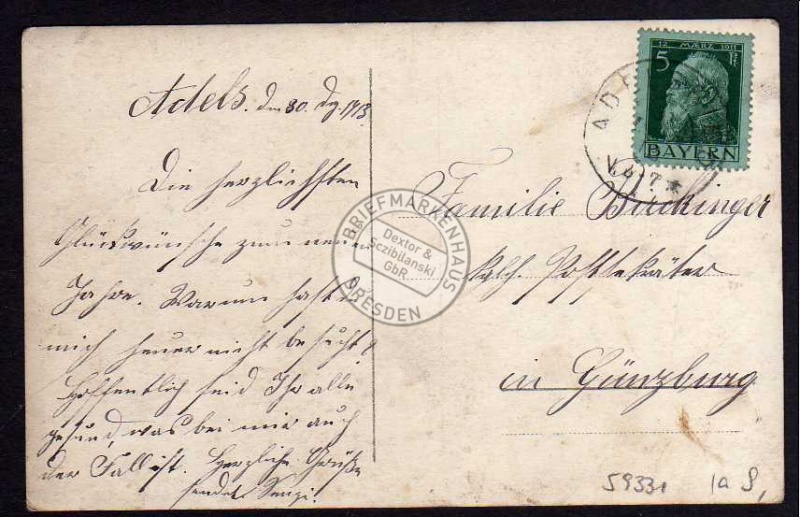 Adels. den 30. Dez. 1913.
Die herzlichsten
Glückwünsche zum neuen
Jahre. Warum hast
mich heuer nicht besucht?
Hoffentlich seid Ihr alle
gesund, was bei mir auch
der Fall ist. Herzliche Grüße
sendet Senzi.
12. MÄRZ 1911
5 Pf.
BAYERN
V. 6/7 *
Familie Birkinger
kgl. Postsekretär
in Günzburg
BRIEFMARKENHAUS
Dextor &
Sczibilanski
GbR
DRESDEN
59331 1a S,